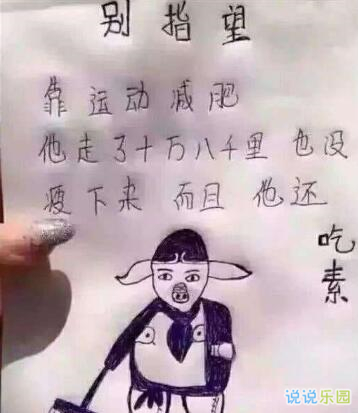 别指望
靠运动减肥
他走了十万八千里也没
瘦下来 而且他还
吃素
说说乐园